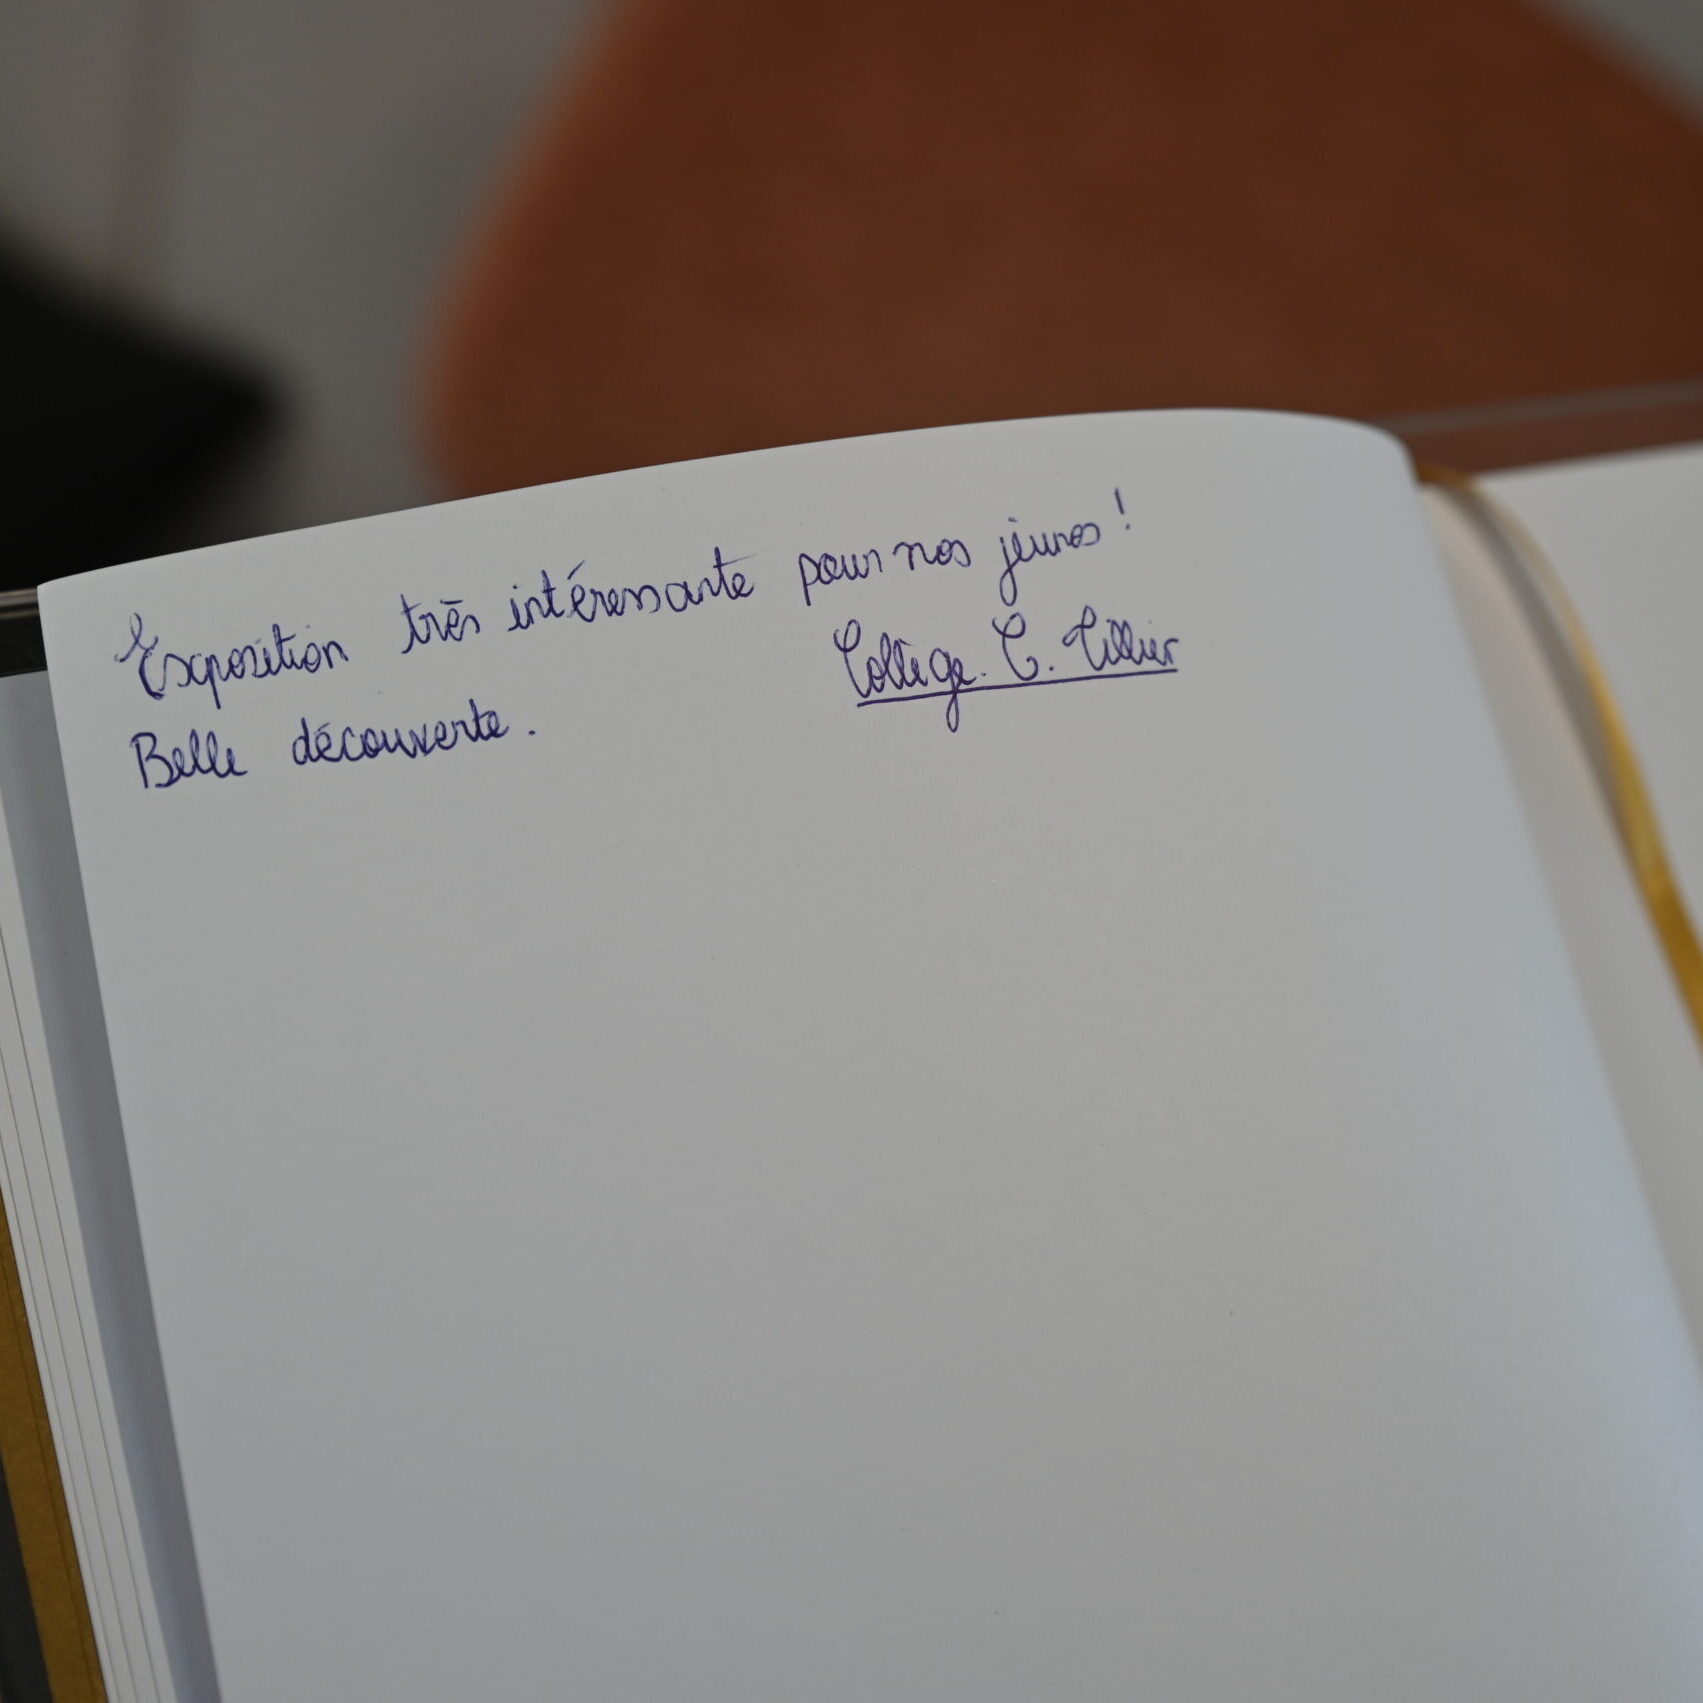 Exposition très intéressante pour nos jeunes !
Belle découverte.
Collège. C. Tillier